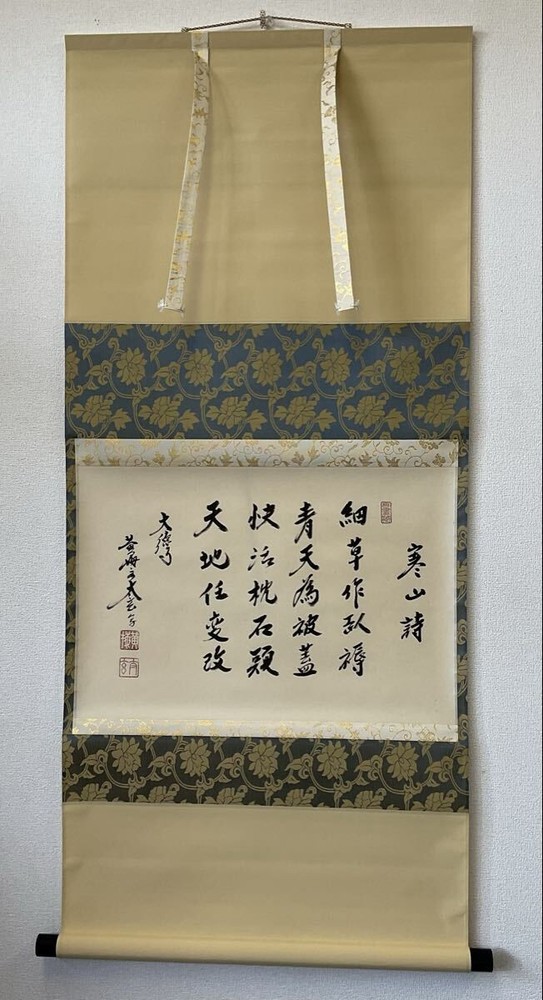 寒山詩
細草作臥褥
青天為被蓋
快活枕石頭
天地任變改
大徳
黄梅